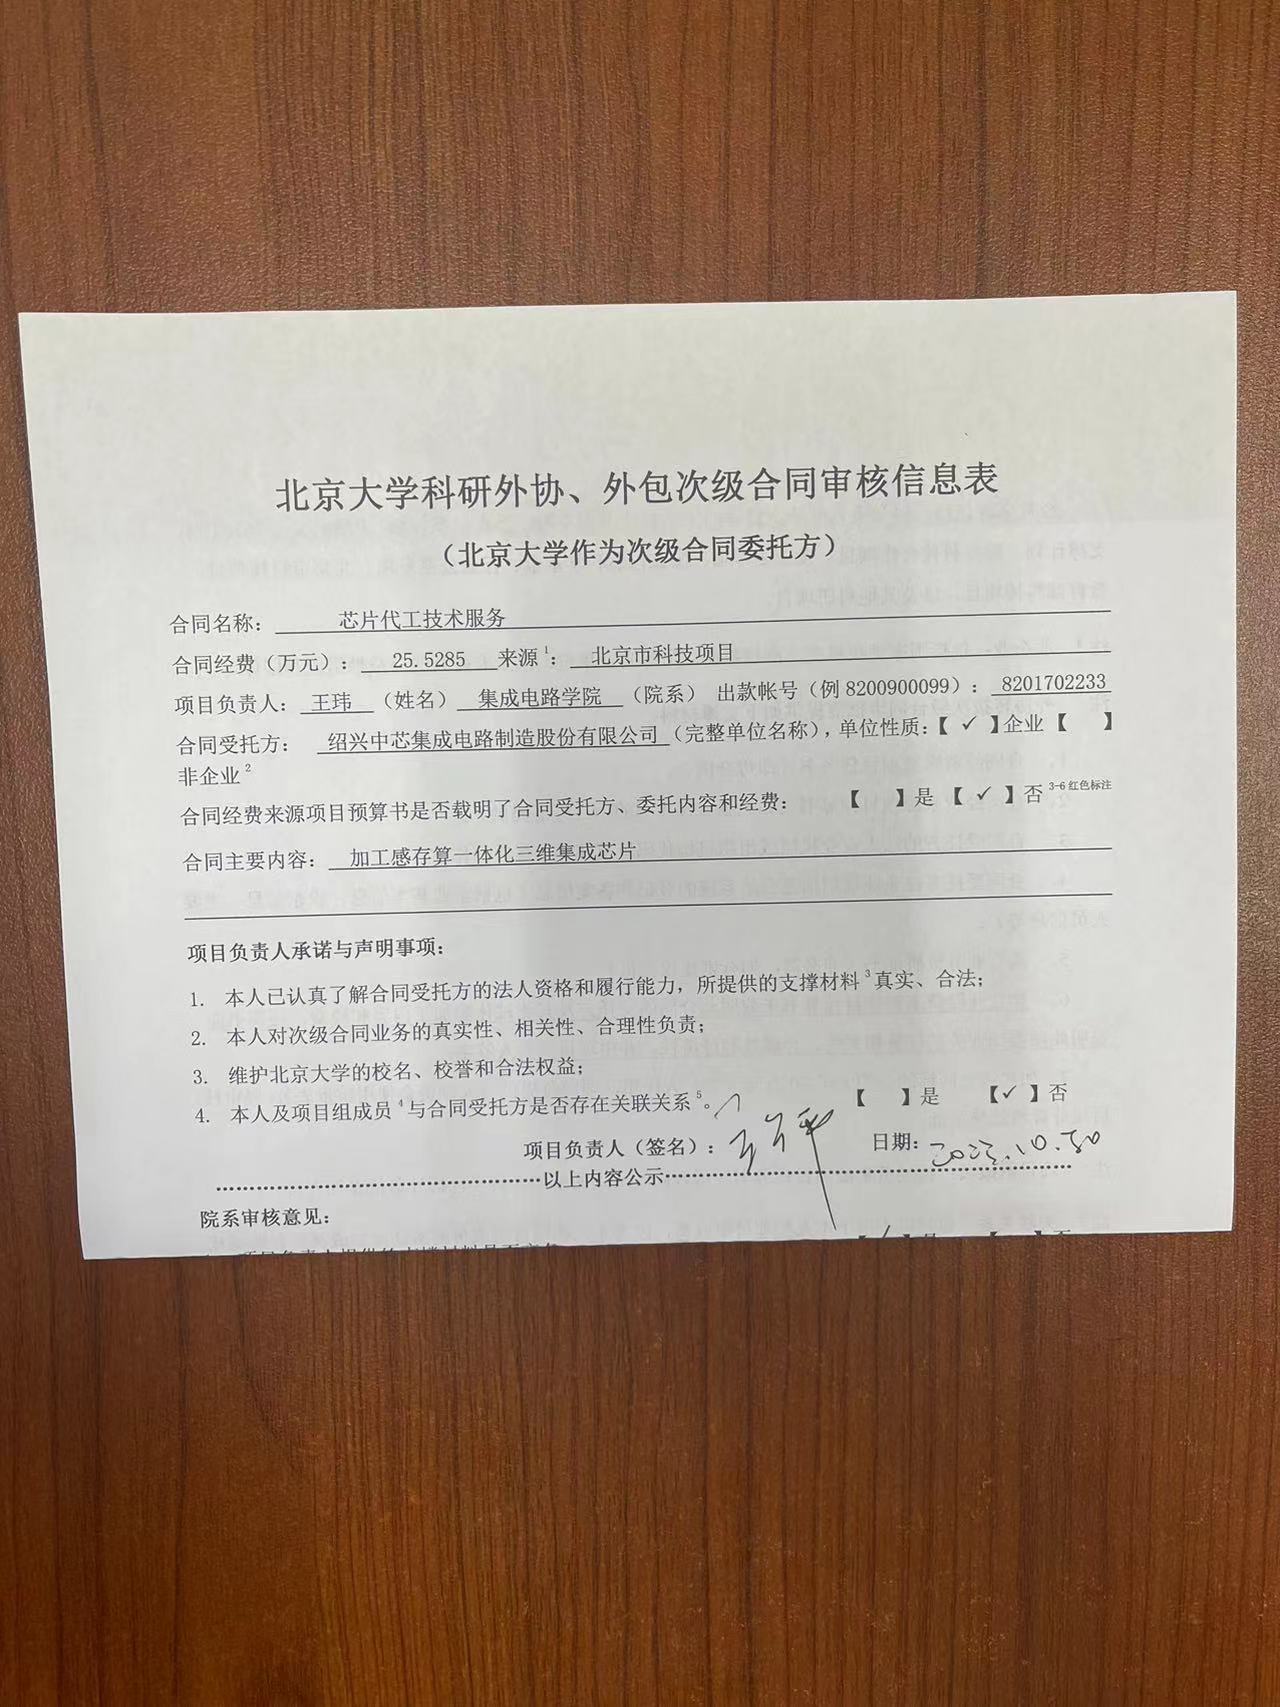 北京大学科研外协、外包次级合同审核信息表
（北京大学作为次级合同委托方）
合同名称： 芯片代工技术服务
合同经费（万元）： 25.5285 来源1： 北京市科技项目
项目负责人： 王玮 （姓名） 集成电路学院 （院系） 出款帐号（例 8200900099）： 8201702233
合同受托方： 绍兴中芯集成电路制造股份有限公司（完整单位名称），单位性质：【 ✓ 】企业【 】
非企业2
合同经费来源项目预算书是否载明了合同受托方、委托内容和经费： 【 】是 【 ✓ 】否 3-6红色标注
合同主要内容： 加工感存算一体化三维集成芯片
项目负责人承诺与声明事项：
1. 本人已认真了解合同受托方的法人资格和履行能力，所提供的支撑材料3真实、合法；
2. 本人对次级合同业务的真实性、相关性、合理性负责；
3. 维护北京大学的校名、校誉和合法权益；
4. 本人及项目组成员4与合同受托方是否存在关联关系5。 【 】是 【✓ 】否
项目负责人（签名）： 日期：
以上内容公示
院系审核意见：